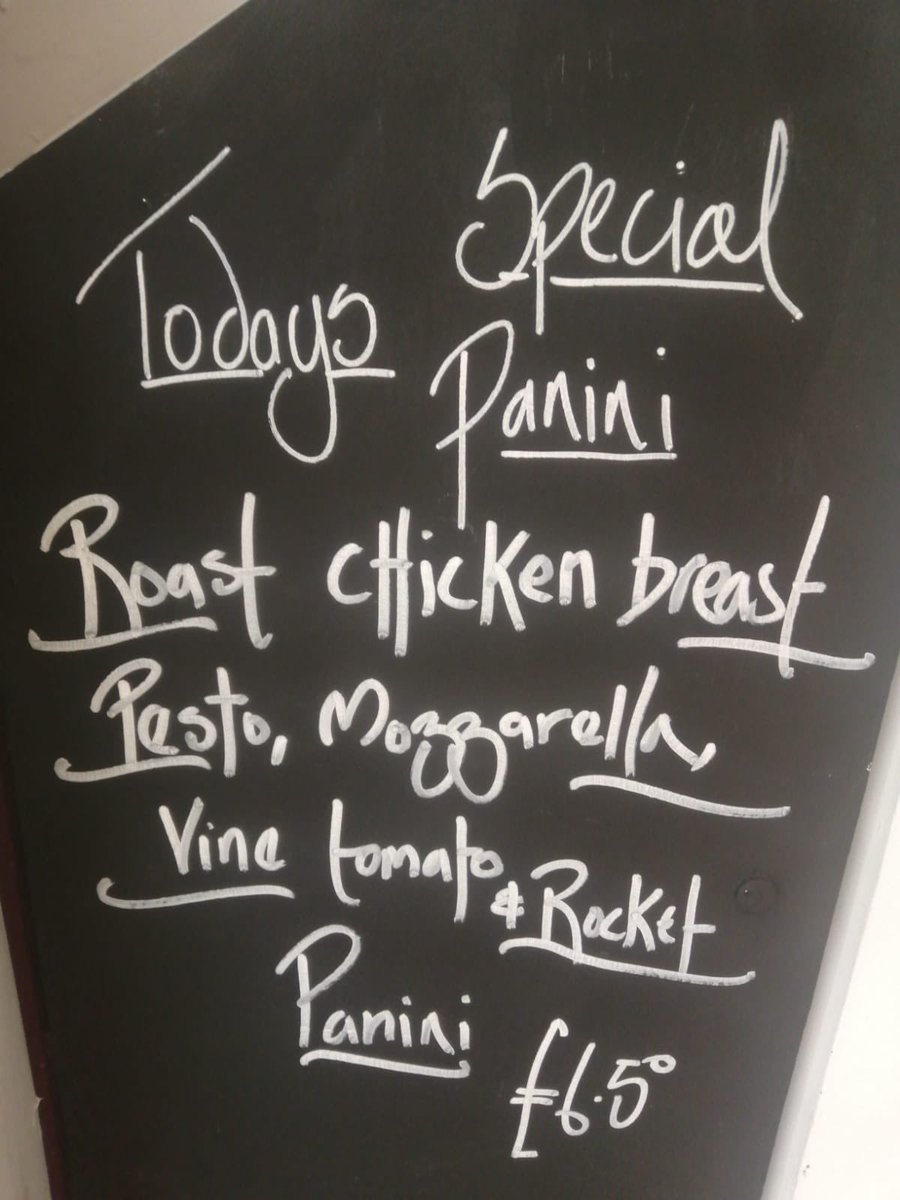 Todays Special
Panini
Roast cHicken breast
Pesto, Mozzarella,
Vine tomato & Rocket
Panini
£6.50